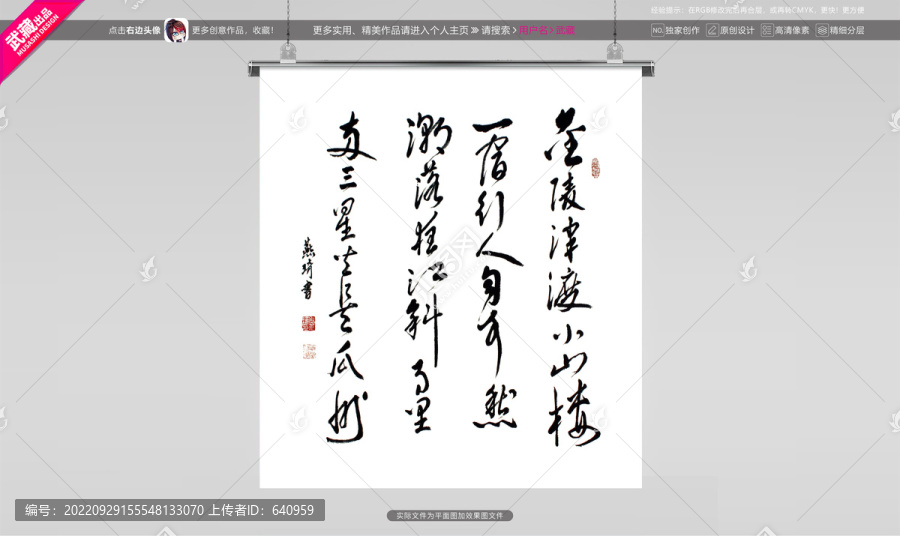 经验提示：在RGB修改完后再合层，或再转CMYK，更快！更方便
武藏出品
MUSASHI DESIGN
点击右边头像 更多创意作品，收藏！
更多实用、精美作品请进入个人主页 >> 请搜索 > 用户名 > 武藏
NO. 独家创作 原创设计 高清像素 精细分层
金陵津渡小山楼
一宿行人自可愁
潮落夜江斜月里
两三星火是瓜州
燕琦書
编号：20220929155548133070 上传者ID：640959
实际文件为平面图加效果图文件